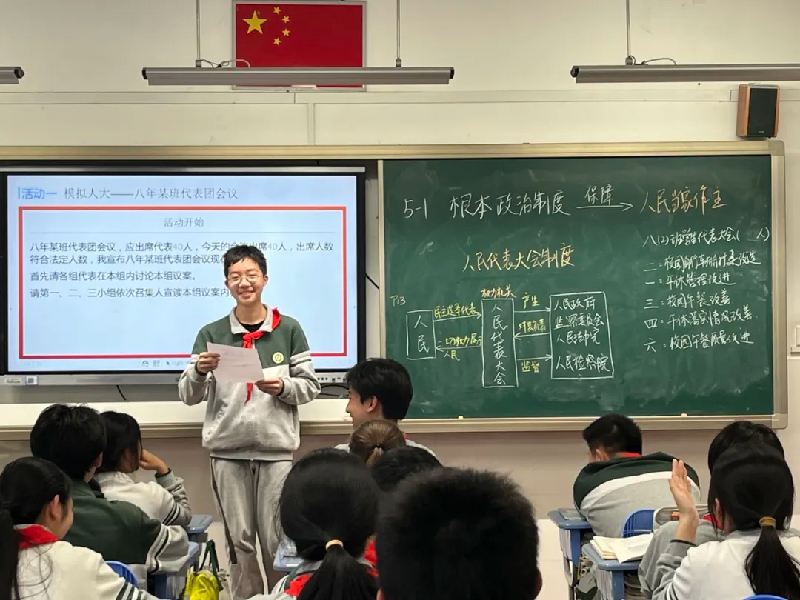 活动一 模拟人大——八年某班代表团会议
活动开始
八年某班代表团会议，应出席代表40人，今天的会议出席40人，出席人数
符合法定人数，我宣布八年某班代表团会议现在
首先请各组代表在本组内讨论本组议案。
请第一、二、三小组依次召集人宣读本组议案内
5-1 根本政治制度 保障 人民当家作主
人民代表大会制度
P13
人民
民主选举代表
人民
权力机关
人民代表大会
产生
对其负责
监督
人民政府
监察委员会
人民法院
人民检察院
八(2)班 代表大会( 人)
三：校园午餐改善
四：午休 情况改善
六：校园午餐 改进